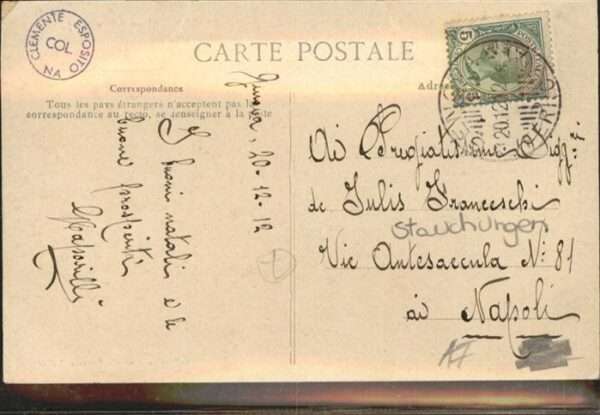 CLEMENTE ESPOSITO
COL
NA
CARTE POSTALE
Correspondance
Tous les pays étrangers n'acceptent pas la
correspondance au recto, se renseigner à la poste
20-12-12
I buoni natali e le
buone prosperità
Ai Pregiatissimi Sigg.ri
de Iulis Franceschi
Stauchungen
Via Antesaecula N: 81
ai Napoli